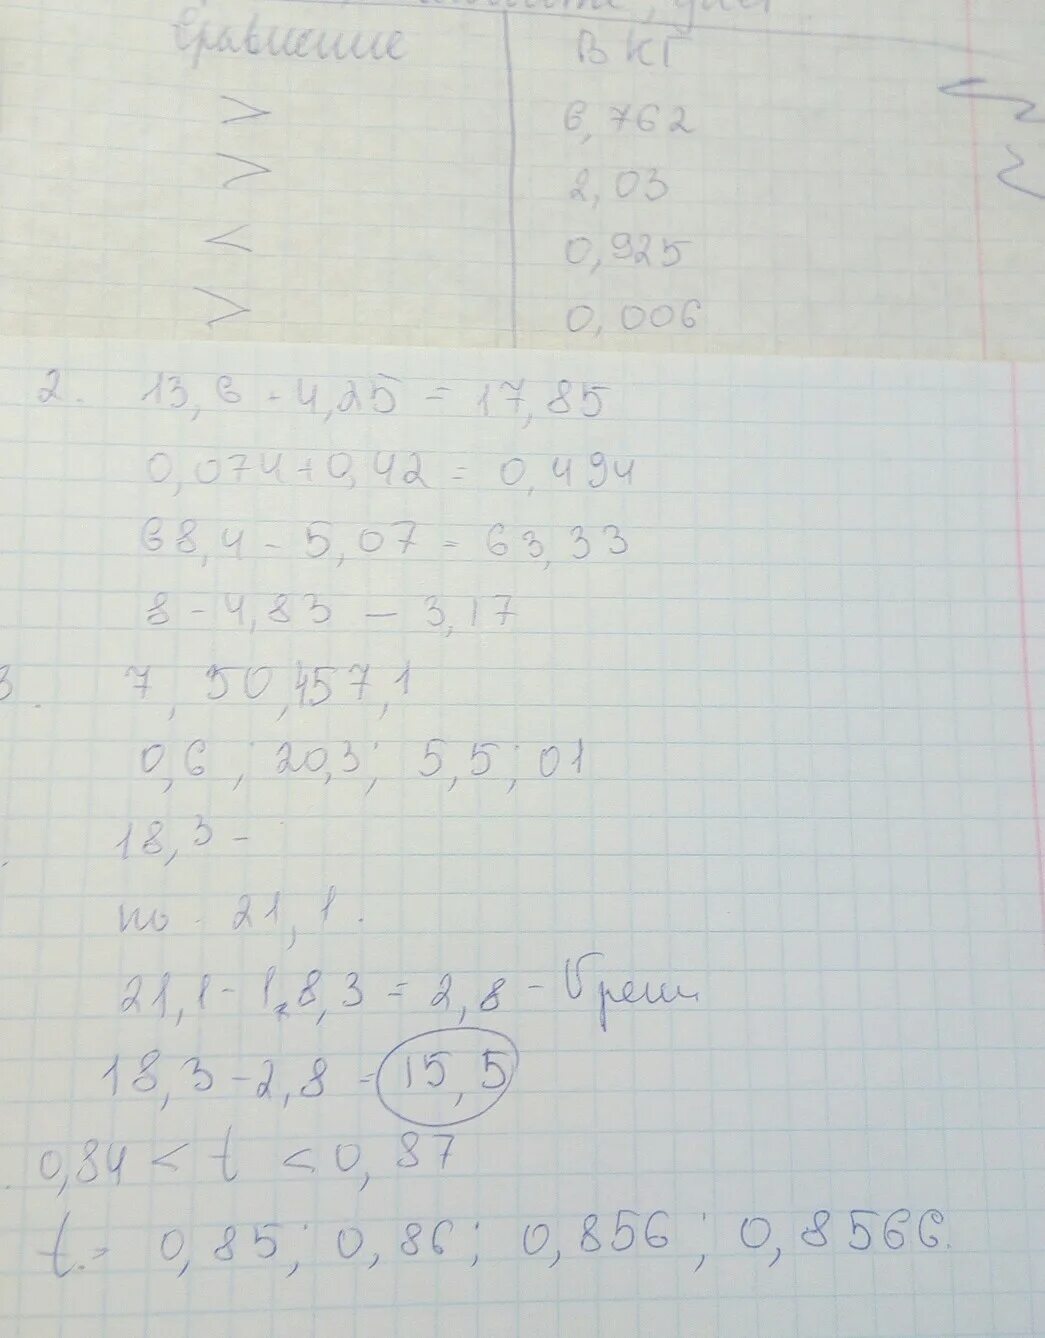 Сравнение В КГ
> 6,762
> 2,03
< 0,925
> 0,006
2. 13,6 - 4,25 = 17,85
0,074 + 0,42 = 0,494
68,4 - 5,07 = 63,33
8 - 4,83 — 3,17
3. 7, 50,457,1
0,6 ; 20,3; 5,5; 01
18,3 -
по - 21,1.
21,1 - 18,3 = 2,8 -
18,3 - 2,8 = 15,5
0,84 < t < 0,87
t = 0,85; 0,86; 0,856; 0,8566.